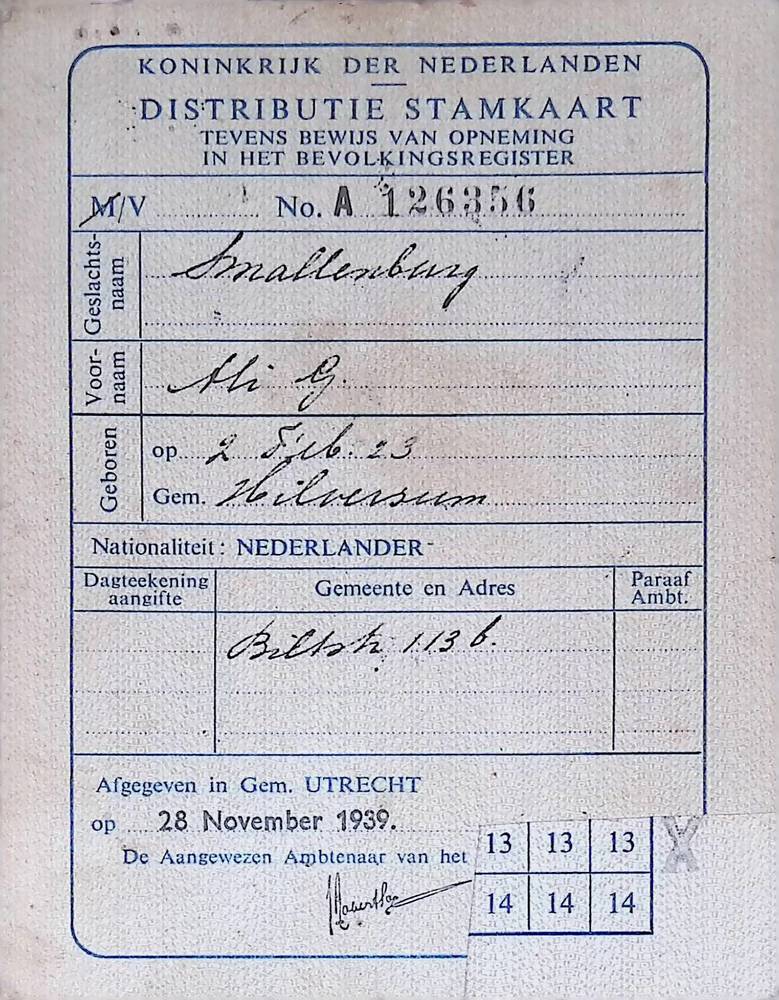 KONINKRIJK DER NEDERLANDEN
DISTRIBUTIE STAMKAART
TEVENS BEWIJS VAN OPNEMING
IN HET BEVOLKINGSREGISTER
M/V No. A 126356
Geslachts-
naam
Smallenburg
Voor-
naam
Ali G.
Geboren
op 2 Feb. 23
Gem. Hilversum
Nationaliteit: NEDERLANDER
Dagteekening
aangifte
Gemeente en Adres
Paraaf
Ambt.
Biltstr 113 b.
Afgegeven in Gem. UTRECHT
op 28 November 1939.
De Aangewezen Ambtenaar van het
13 13 13 X
14 14 14